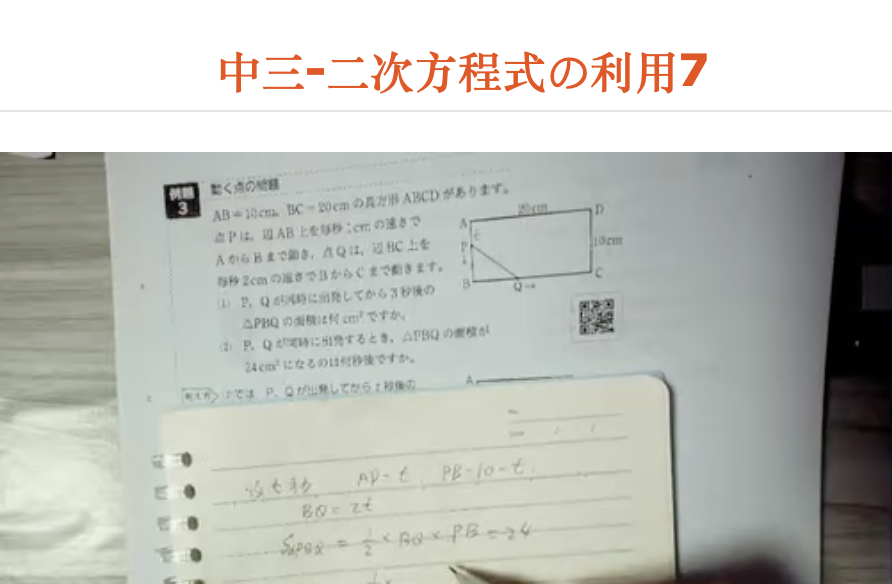 中三-二次方程式の利用7
例題 3
動く点の問題
AB=10cm、BC=20cmの長方形ABCDがあります。
点Pは、辺AB上を毎秒1cmの速さで
AからBまで動き、点Qは、辺BC上を
毎秒2cmの速さでBからCまで動きます。
(1) P、Qが同時に出発してから3秒後の
△PBQの面積は何cm²ですか。
(2) P、Qが同時に出発するとき、△PBQの面積が
24cm²になるのは何秒後ですか。
考え方 (2)では、P、Qが出発してからt秒後の
20cm
A
D
t
P
10cm
B
Q→
C
A
设t秒 AP=t PB=10-t.
BQ=2t
S△PBQ = 1/2 × BQ × PB = 24